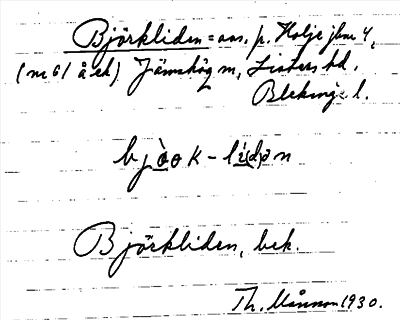 Björkliden = ans. p. Holje jbn 4,
(m 61 å ek) Jämshög sn, Listers hd.
Blekinge l.
bjòok-li(d)ən
Björkliden, bek.
Th. Månsson 1930.